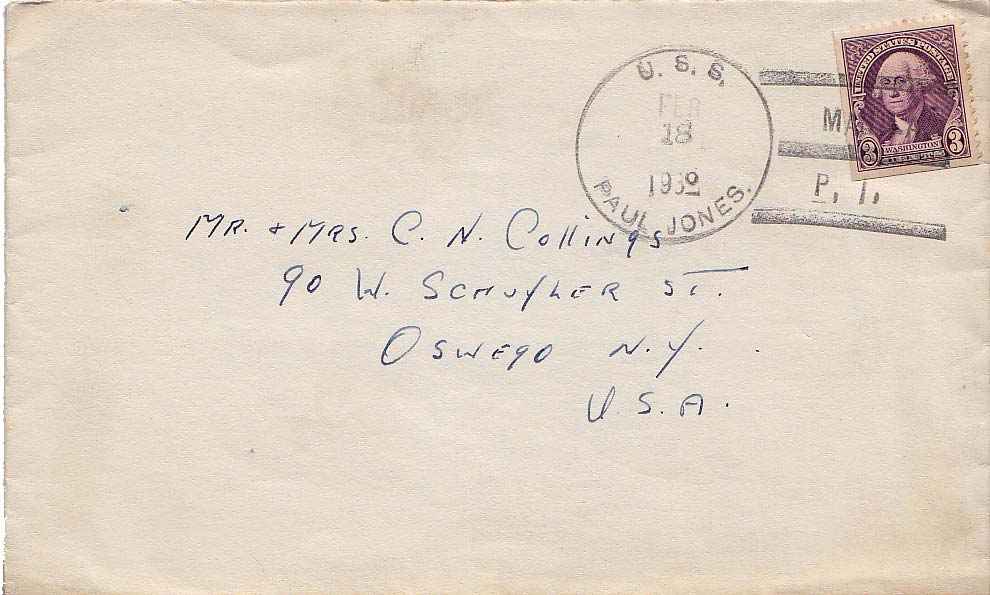 U. S. S.
FEB
18
PAUL JONES.
P. I.
UNITED STATES POSTAGE
3 WASHINGTON 3
MR. + MRS. C. N. Collings
90 W. SCHUYLER ST.
OSWEGO N.Y.
U.S.A.